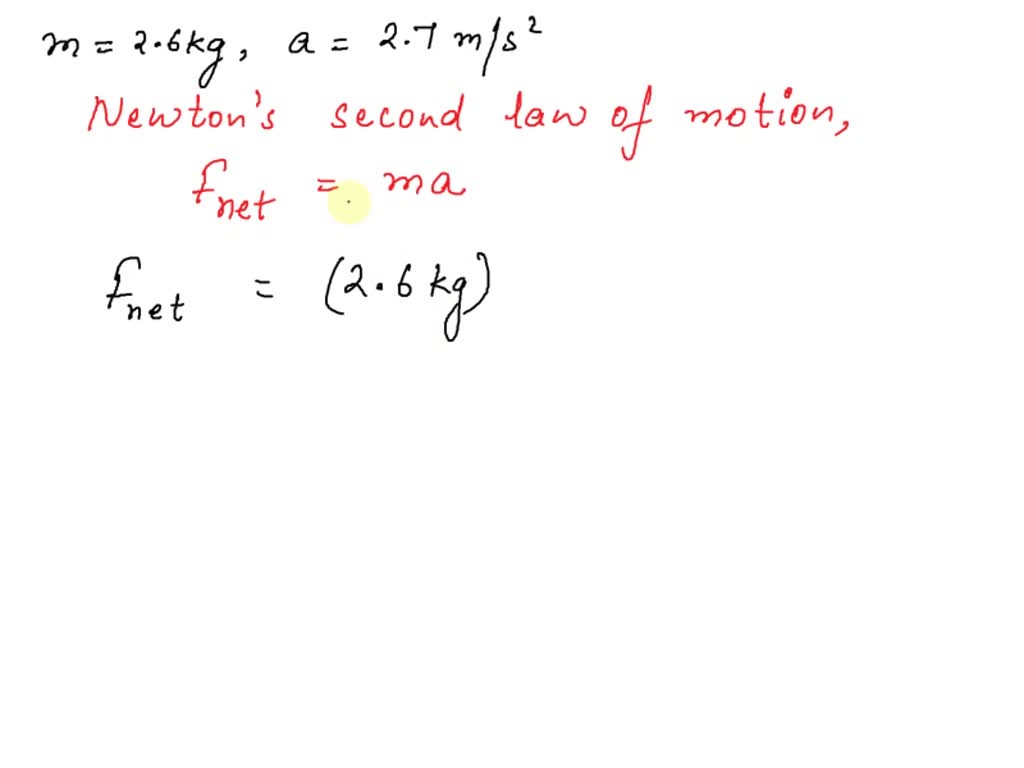 m = 2.6kg, a = 2.7 m/s²
Newton's second law of motion,
Fnet = ma
Fnet = (2.6 kg)